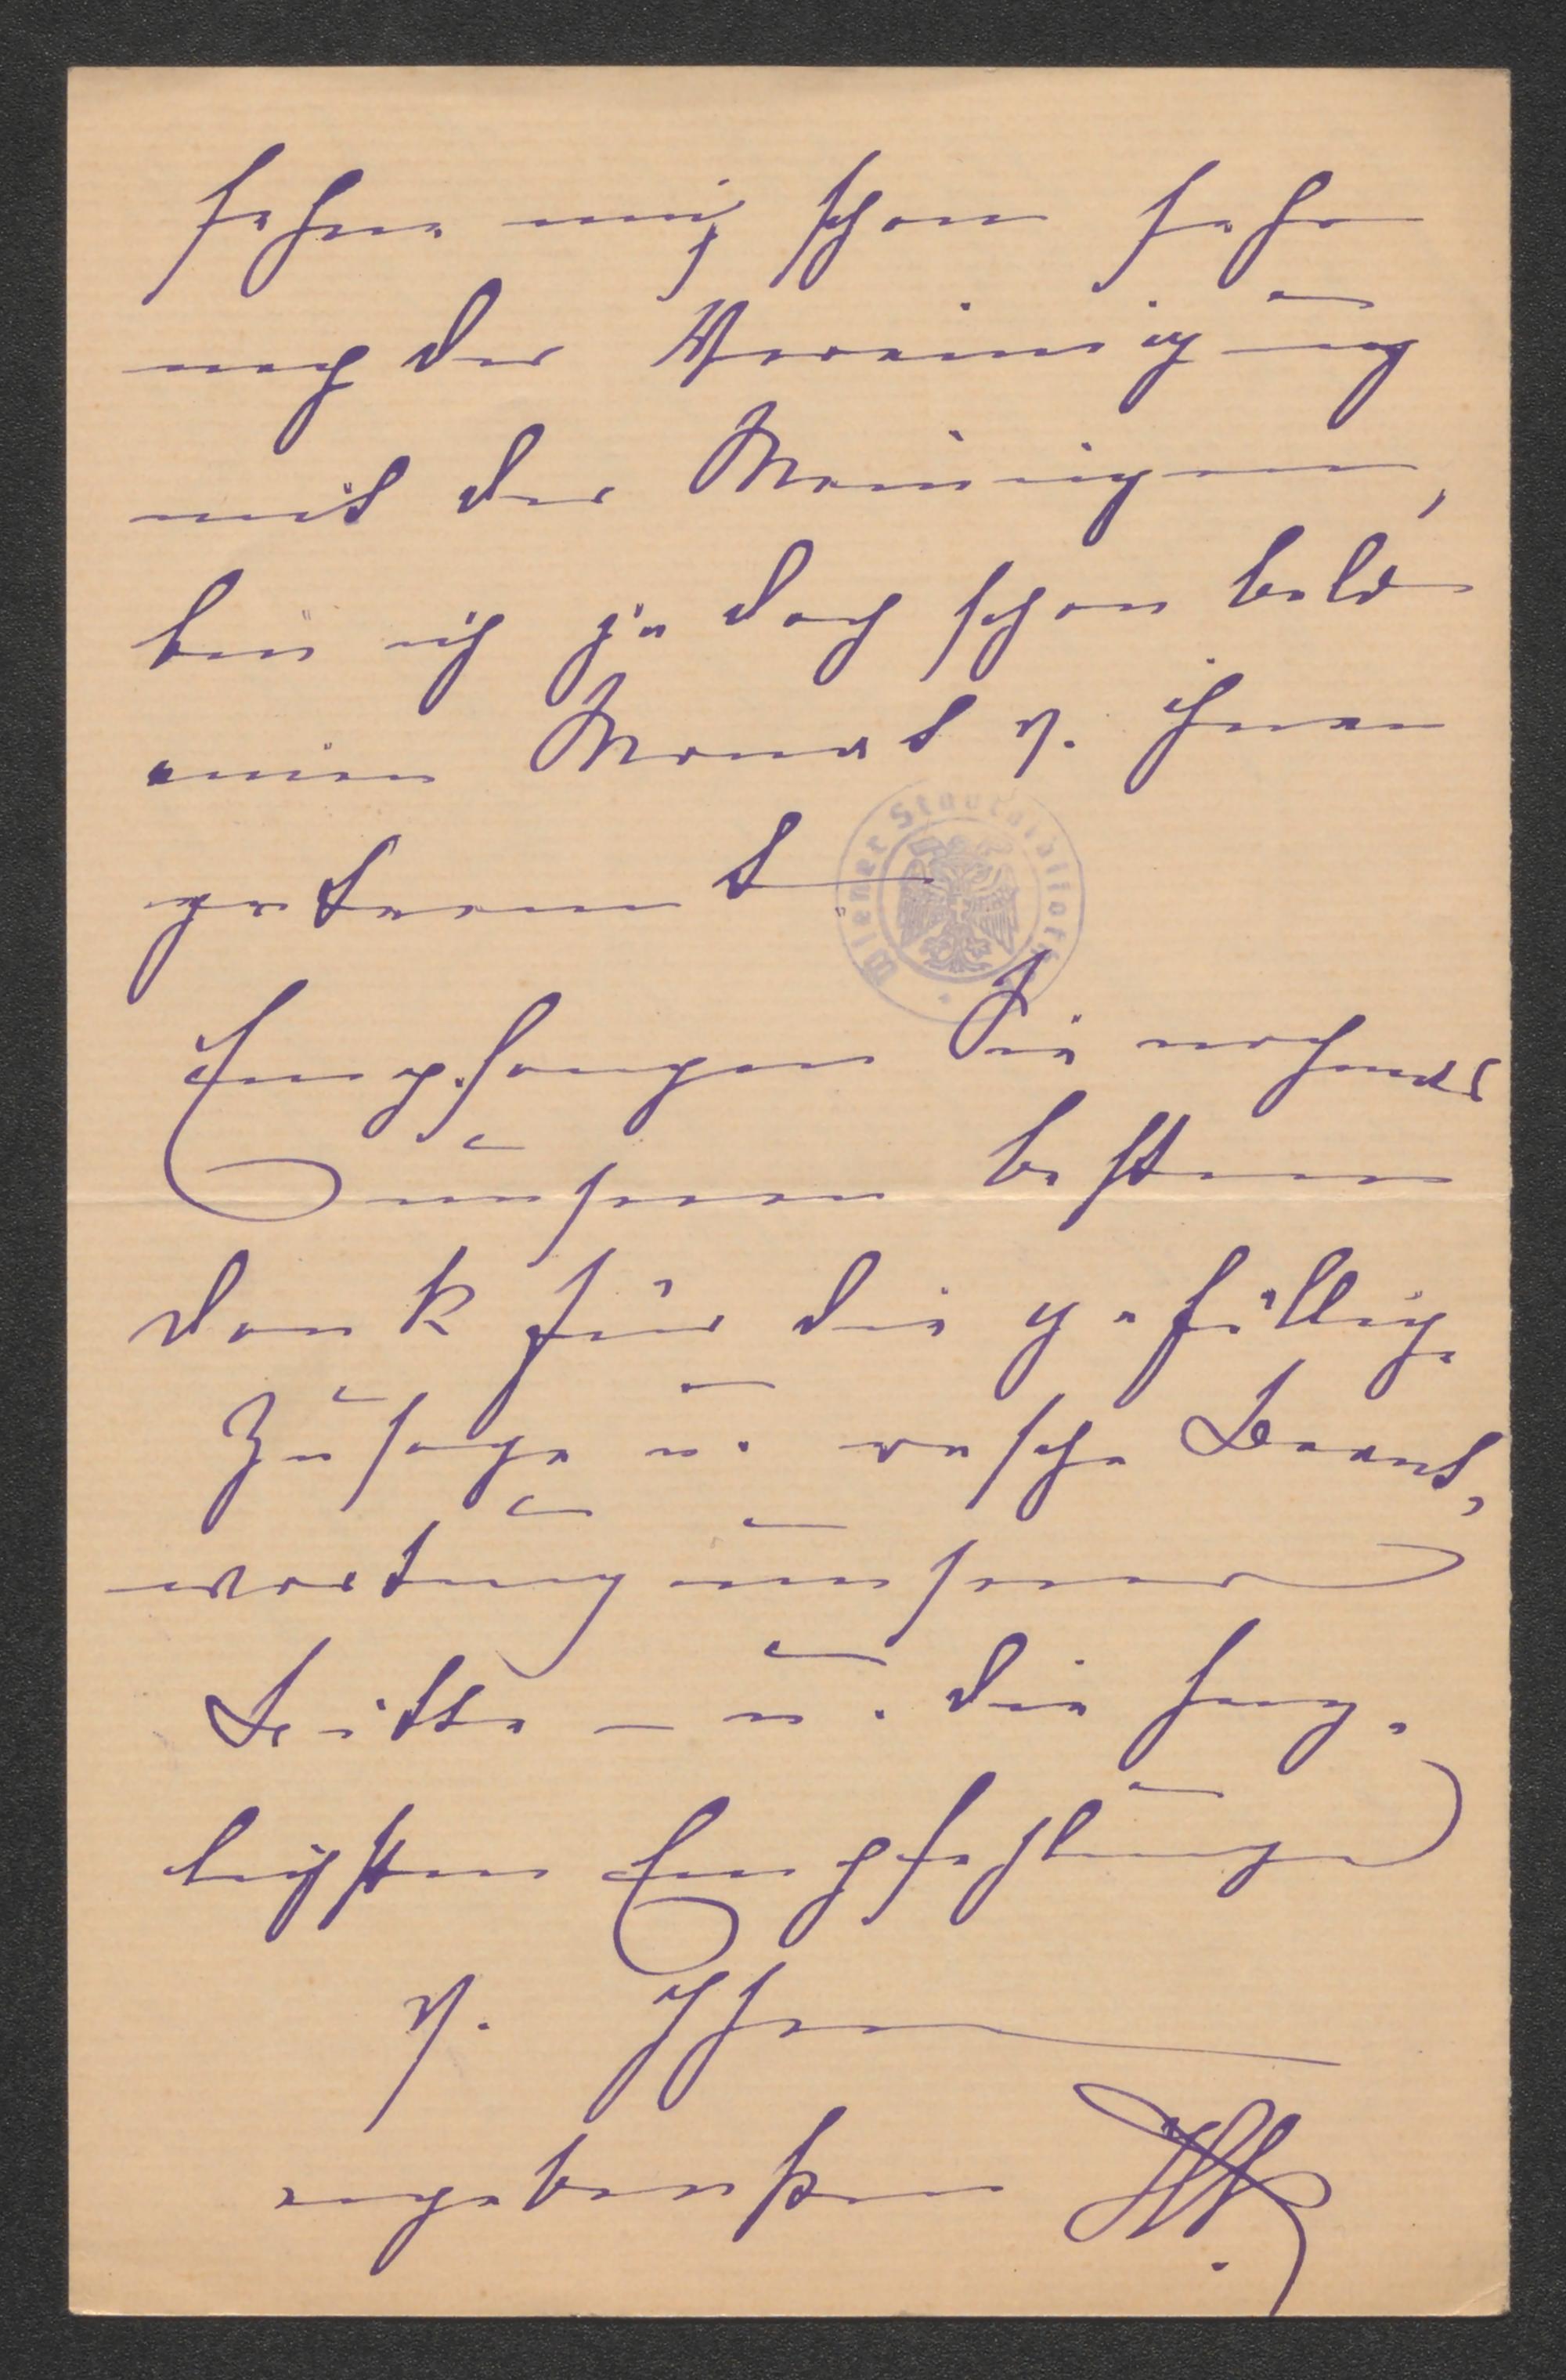 sehne mich schon sehr
nach der Vereinigung
mit den Meinigen,
bin ich ja doch schon bald
einen Monat v. ihnen
getrennt
Wiener Stadtbibliothek
Empfangen Sie nochmals
unseren besten
Dank für die gefällige
Zusage u. rasche Beant,
wortung unserer
Bitte – u. die herz-
lichsten Empfehlungen
v. Ihrem
ergebensten